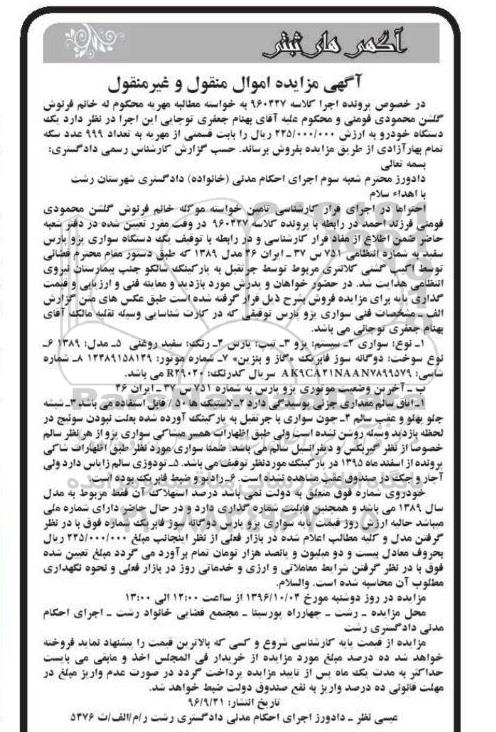 آگهی های ثبتی
آگهی مزایده اموال منقول و غیرمنقول
در خصوص پرونده اجرا کلاسه ۹۶۰۴۲۷ به خواسته مطالبه مهریه محکوم له خانم فرنوش
گلشن محمودی قومنی و محکوم علیه آقای بهنام جعفری توجایی این اجرا در نظر دارد یک
دستگاه خودرو به ارزش ۲۲۵/۰۰۰/۰۰۰ ریال را بابت قسمتی از مهریه به تعداد ۹۹۹ عدد سکه
تمام بهارآزادی از طریق مزایده بفروش برساند. حسب گزارش کارشناس رسمی دادگستری:
بسمه تعالی
دادورز محترم شعبه سوم اجرای احکام مدنی (خانواده) دادگستری شهرستان رشت
با اهداء سلام
احتراما در اجرای قرار کارشناسی تامین خواسته موکله خانم فرنوش گلشن محمودی
قومنی فرزند احمد در رابطه با پرونده کلاسه ۹۶۰۴۲۷ در وقت مقرر تعیین شده در دفتر شعبه
حاضر ضمن اطلاع از مفاد قرار کارشناسی و در رابطه با توقیف یک دستگاه سواری پژو پارس
سفید به شماره انتظامی ۷۵۱ س ۳۷ ـ ایران ۴۶ مدل ۱۳۸۹ که طبق دستور مقام محترم قضائی
توسط اکیپ گشتی کلانتری مربوط توسط جرثقیل به پارکینگ شالکو جنب بیمارستان نیروی
انتظامی هدایت شد. در حضور خواهان و پدرش مورد بازدید و معاینه فنی و ارزیابی و قیمت
گذاری پایه برای مزایده فروش بشرح ذیل قرار گرفته شده است طبق عکس های متن گزارش
الف ـ مشخصات فنی سواری پژو پارس توقیفی که در کارت شناسایی وسیله نقلیه مالک آقای
بهنام جعفری توجائی می باشد.
۱ـ نوع: سواری ۲ـ سیستم: پژو ۳ـ تیپ: پارس ۴ـ رنگ: سفید روغنی ۵ـ مدل: ۱۳۸۹ ۶ـ
نوع سوخت: دوگانه سوز فابریک «گاز و بنزین» ۷ـ شماره موتور: ۱۲۴۸۹۱۵۸۱۲۹ ۸ـ شماره
شاسی: AK9CA۲۱NAAN۷۸۹۹۵۷۹ سریال کدرنگ: R۲۹۰۲۴ می باشد.
ب ـ آخرین وضعیت موتوری پژو پارس به شماره ۷۵۱ س ۳۷ ـ ایران ۴۶
۱ـ اتاق سالم مقداری جزئی پوسیدگی دارد ۲ـ لاستیک ها ۵۰٪ قابل استفاده می باشد ۳ـ شیشه
جلو پهلو و عقب سالم ۴ـ چون سواری با جرثقیل به پارکینگ آورده شده بعلت نبودن سوئیچ در
لحظه بازدید وسیله روشن نشده است ولی طبق اظهارات همسر مشاکی سواری پژو از هر نظر سالم
خصوصا از نظر گیربکس و دیفرانسیل سالم می باشد. ضمنا سواری مورد نظر طبق اظهارات شاکی
پرونده از اسفند ماه ۱۳۹۵ در پارکینگ موردنظر توقیف می باشد. ۵ـ تودوزی سالم زاپاس دارد ولی
آچار و جک در صندوق عقب مشاهده نشده است. ۶ـ رادیو و ضبط فابریک بوده است.
خودروی شماره فوق متعلق به دولت نمی باشد درصد استهلاک آن فقط مربوط به مدل
سال ۱۳۸۹ می باشد و همچنین قابلیت شماره گذاری دارد و در حال حاضر دارای شماره ملی
میباشد حالیه ارزش روز قیمت پایه سواری پژو پارس دوگانه سوز فابریک شماره فوق با در نظر
گرفتن مدل و کلیه مطالب اعلام شده در بازار فعلی از نظر اینجانب مبلغ ۲۲۵/۰۰۰/۰۰۰ ریال
بحروف معادل بیست و دو میلیون و پانصد هزار تومان تمام برآورد می گردد مبلغ تعیین شده
فوق با در نظر گرفتن شرایط معاملاتی و ارزی و خدماتی روز در بازار فعلی و نحوه نگهداری
مطلوب آن محاسبه شده است. والسلام.
مزایده در روز دوشنبه مورخ ۱۳۹۶/۱۰/۰۴ از سا‌اعت ۱۲:۰۰ الی ۱۳:۰۰
محل مزایده ـ رشت ـ چهارراه پورسینا ـ مجتمع قضایی خانواد رشت ـ اجرای احکام
مدنی دادگستری رشت
مزایده از قیمت پایه کارشناسی شروع و کسی که بالاترین قیمت را پیشنهاد نماید فروخته
خواهد شد ده درصد مبلغ مورد مزایده از خریدار فی المجلس اخذ و مابقی می بایست
حداکثر به مدت یک ماه پس از تایید مزایده پرداخت گردد در صورت عدم واریز مبلغ در
مهلت قانونی ده درصد واریز به نفع صندوق دولت ضبط خواهد شد.
تاریخ انتشار: ۹۶/۹/۲۱
عیسی نظر ـ دادورز اجرای احکام مدنی دادگستری رشت ر/م/الف/ت ۵۳۷۶